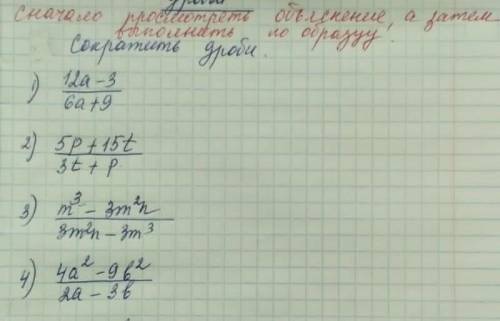 дроби
сначало просмотреть объяснение, а затем
выполнять по образцу.
Сократить дроби.
1) (12a - 3)/(6a + 9)
2) (5p + 15t)/(3t + p)
3) (m³ - 3m²n)/(3m²n - 3m³)
4) (4a² - 9b²)/(2a - 3b)